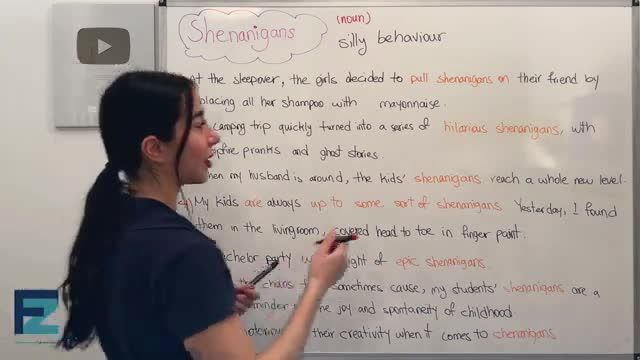 Shenanigans
(noun)
silly behaviour
At the sleepover, the girls decided to pull shenanigans on their friend by
placing all her shampoo with mayonnaise.
camping trip quickly turned into a series of hilarious shenanigans, with
pranks and ghost stories.
hen my husband is around, the kids' shenanigans reach a whole new level.
My kids are always up to some sort of shenanigans. Yesterday, I found
them in the livingroom, covered head to toe in finger paint.
party of epic shenanigans.
chaos sometimes cause, my students' shenanigans are a
the joy and spontaneity of childhood
their creativity when it comes to shenanigans
EZ